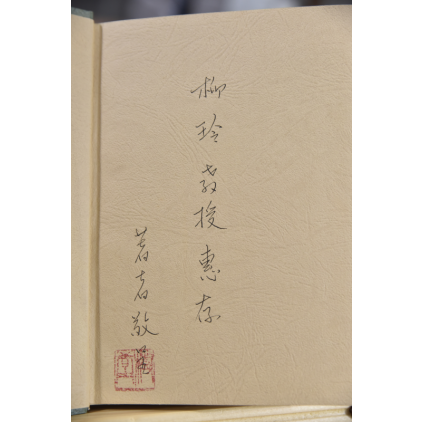 柳玲教授惠存
著者敬赠